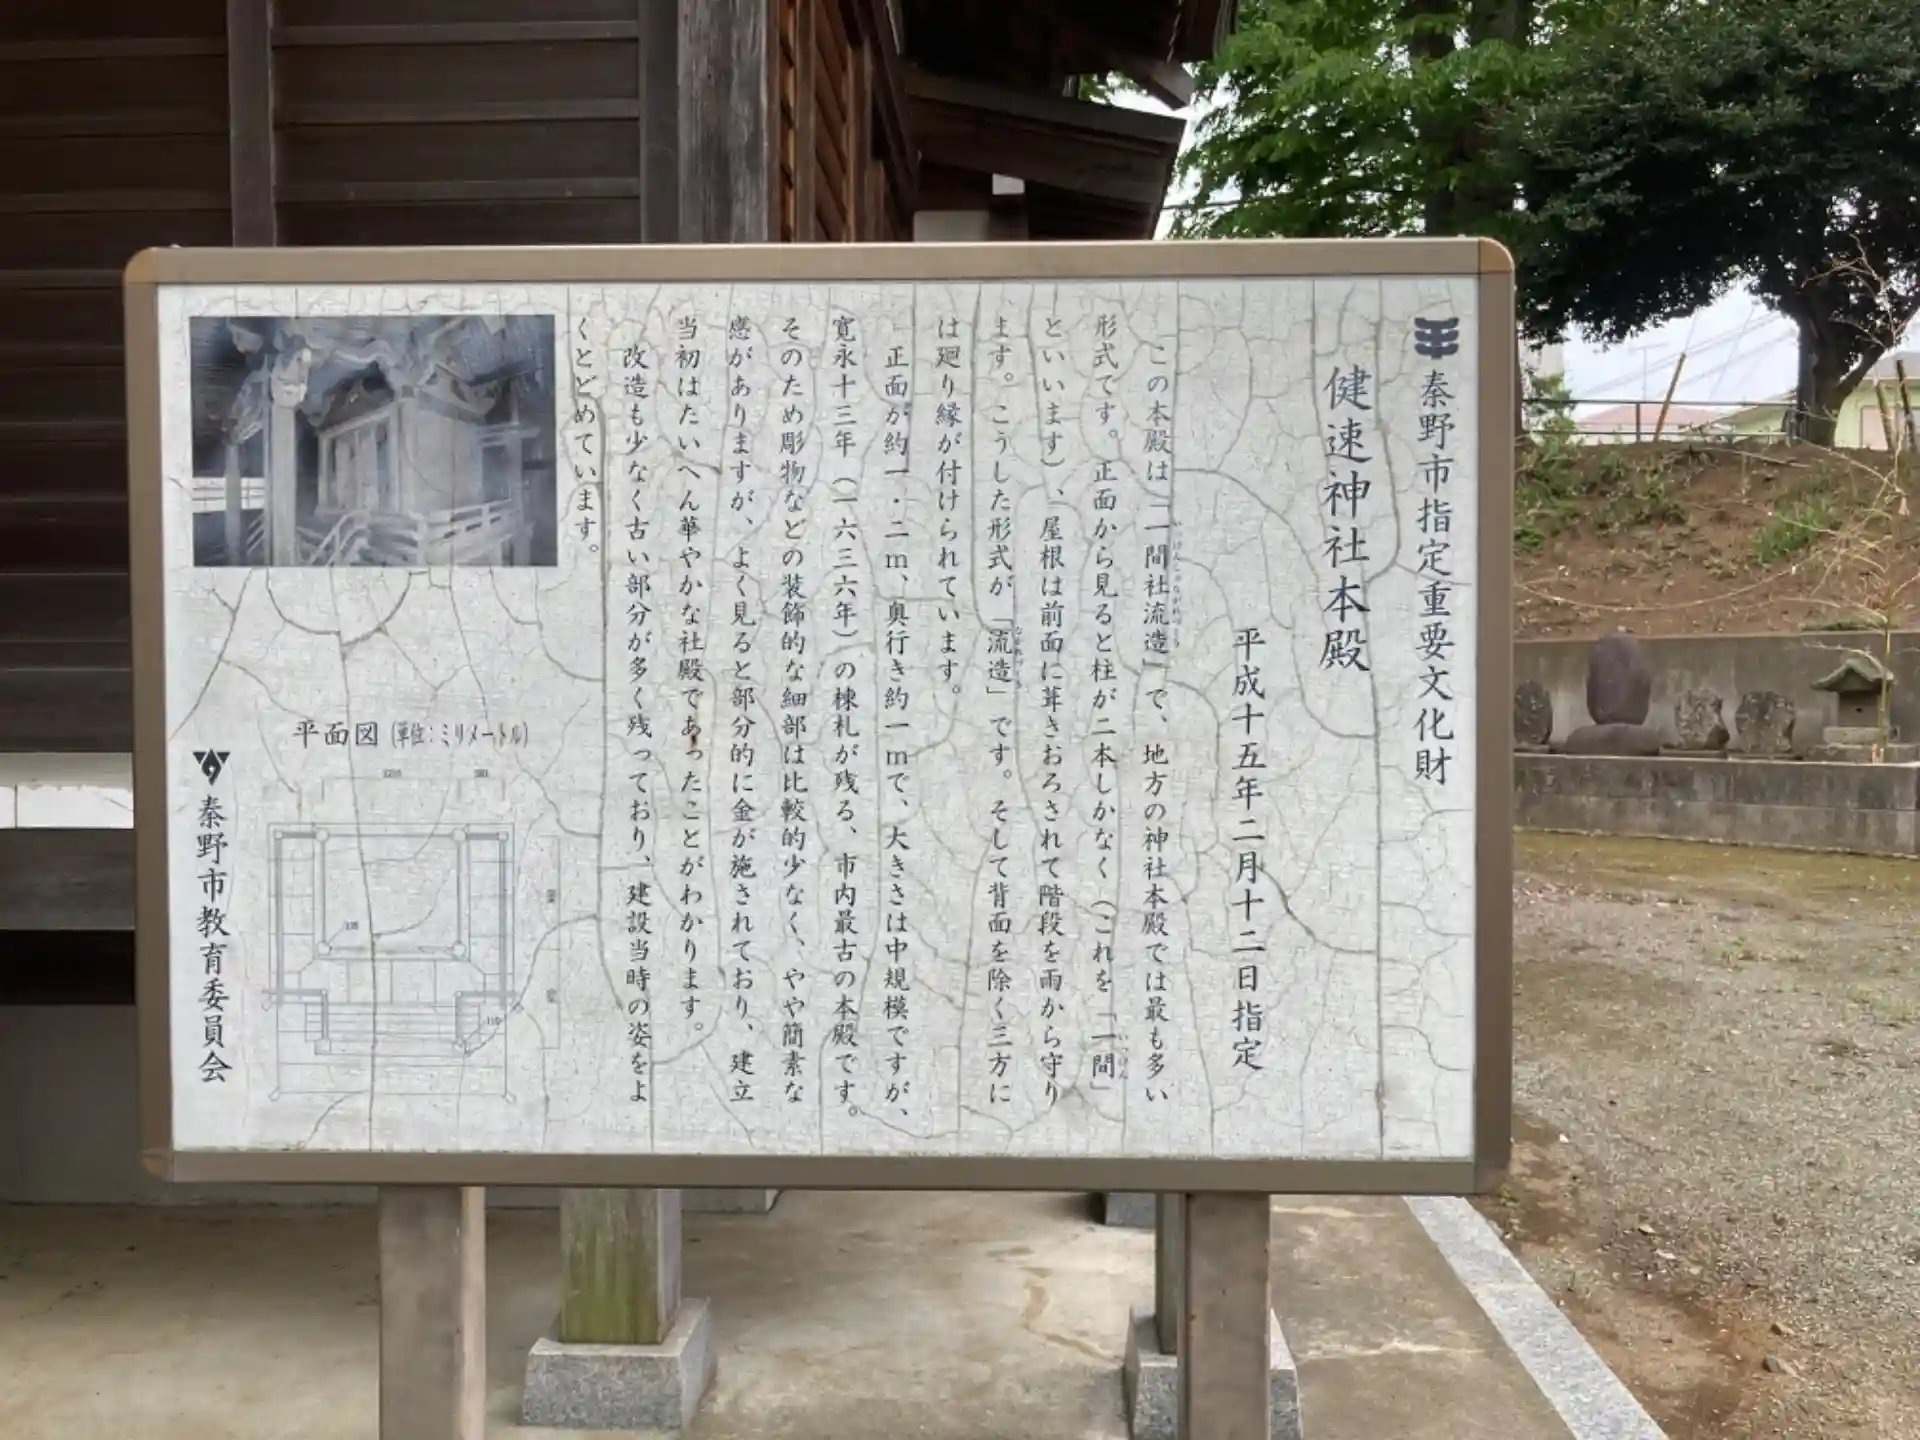 秦野市指定重要文化財
健速神社本殿
平成十五年二月十二日指定
この本殿は「一間社流造」で、地方の神社本殿では最も多い
形式です。正面から見ると柱が二本しかなく（これを「一間」
といいます）、屋根は前面に葺きおろされて階段を雨から守り
ます。こうした形式が「流造」です。そして背面を除く三方に
は廻り縁が付けられています。
正面が約一・二ｍ、奥行き約一ｍで、大きさは中規模ですが、
寛永十三年（一六三六年）の棟札が残る、市内最古の本殿です。
そのため彫物などの装飾的な細部は比較的少なく、やや簡素な
感がありますが、よく見ると部分的に金が施されており、建立
当初はたいへん華やかな社殿であったことがわかります。
改造も少なく古い部分が多く残っており、建設当時の姿をよ
くとどめています。
平面図（単位：ミリメートル）
秦野市教育委員会